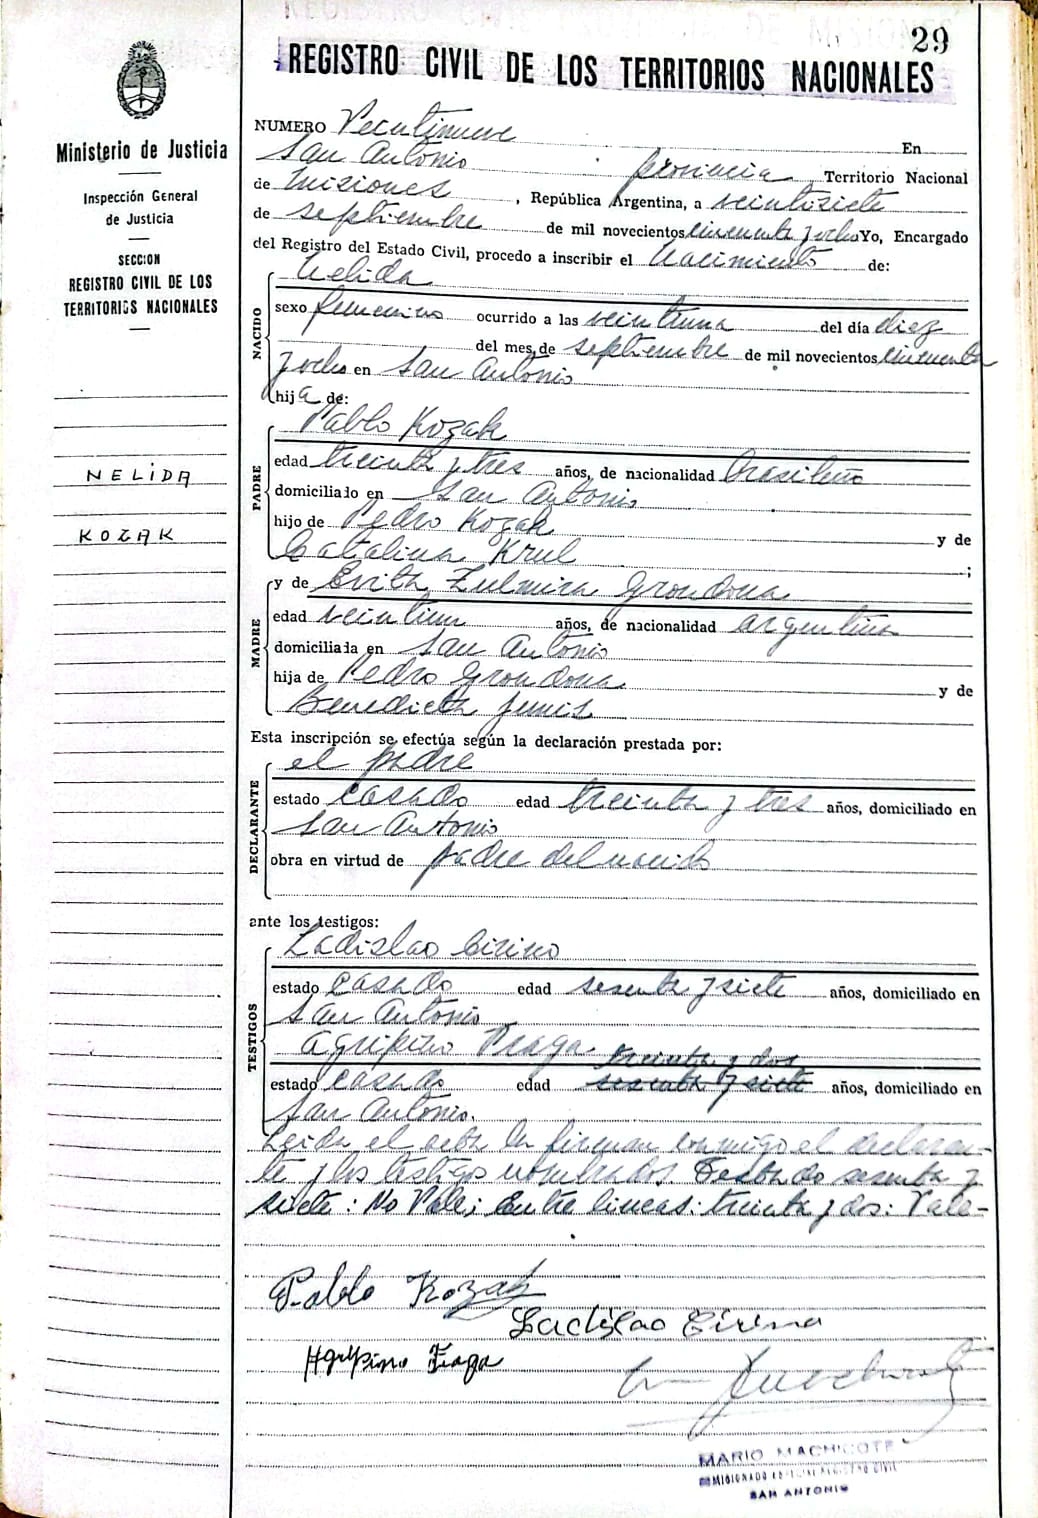 29
REGISTRO CIVIL DE LOS TERRITORIOS NACIONALES
Ministerio de Justicia
Inspección General
de Justicia
SECCION
REGISTRO CIVIL DE LOS
TERRITORIOS NACIONALES
NELIDA
KOZAK
NUMERO Veintinueve En
San Antonio provincia Territorio Nacional
de Misiones, República Argentina, a veintisiete
de septiembre de mil novecientos cincuenta y ocho Yo, Encargado
del Registro del Estado Civil, procedo a inscribir el Nacimiento de:
NACIDO
Nelida
sexo femenino ocurrido a las veintiuna del día diez
del mes de septiembre de mil novecientos cincuenta
y ocho en San Antonio
hija de:
PADRE
Pablo Kozak
edad treinta y tres años, de nacionalidad brasileño
domiciliado en San Antonio
hijo de Pedro Kozak y de
Catalina Krul ;
MADRE
y de Evita Zulmira Grondona
edad veintiun años, de nacionalidad argentina
domiciliada en San Antonio
hija de Pedro Grondona y de
Benedicta
Esta inscripción se efectúa según la declaración prestada por:
DECLARANTE
el padre
estado casado edad treinta y tres años, domiciliado en
San Antonio
obra en virtud de padre del nacido
ante los testigos:
TESTIGOS
Ladislao Cirino
estado casado edad sesenta y siete años, domiciliado en
San Antonio
Agripino Fraga
treinta y dos
estado casado edad sesenta y siete años, domiciliado en
San Antonio.
Leida el acta la firman conmigo el declaran-
te y los testigos nombrados Testado sesenta y
siete: No Vale; Entre lineas: treinta y dos: Vale-
Pablo Kozak
Ladislao Cirino
Agripino Fraga
MARIO MACHICOTE
COMISIONADO ESPECIAL REGISTRO CIVIL
SAN ANTONIO